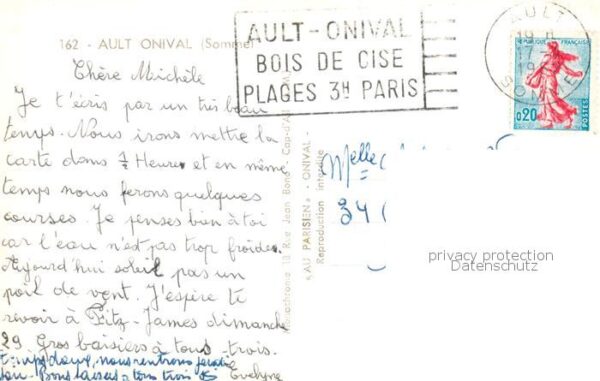 162 - AULT ONIVAL (Somme)
Chère Michèle
Je t'écris par un très beau
temps. Nous irons mettre la
carte dans ½ Heure et en même
temps nous ferons quelques
courses. Je penses bien à toi
car l'eau n'est pas trop froide.
Aujourd'hui soleil pas un
poil de vent. J'espère te
revoir à Fitz-James dimanche
29 Gros baisers à tous trois.
nous rentrons
Bons baisers à tous trois
Evelyne
AULT-ONIVAL
BOIS DE CISE
PLAGES 3H PARIS
AULT
19 H
17-
19
SOMME
REPUBLIQUE FRANÇAISE
0,20
POSTES
13 Rue Jean Bono - Cap-d'A
"AU PARISIEN" - ONIVAL -
Reproduction interdite
Melle
34
privacy protection
Datenschutz